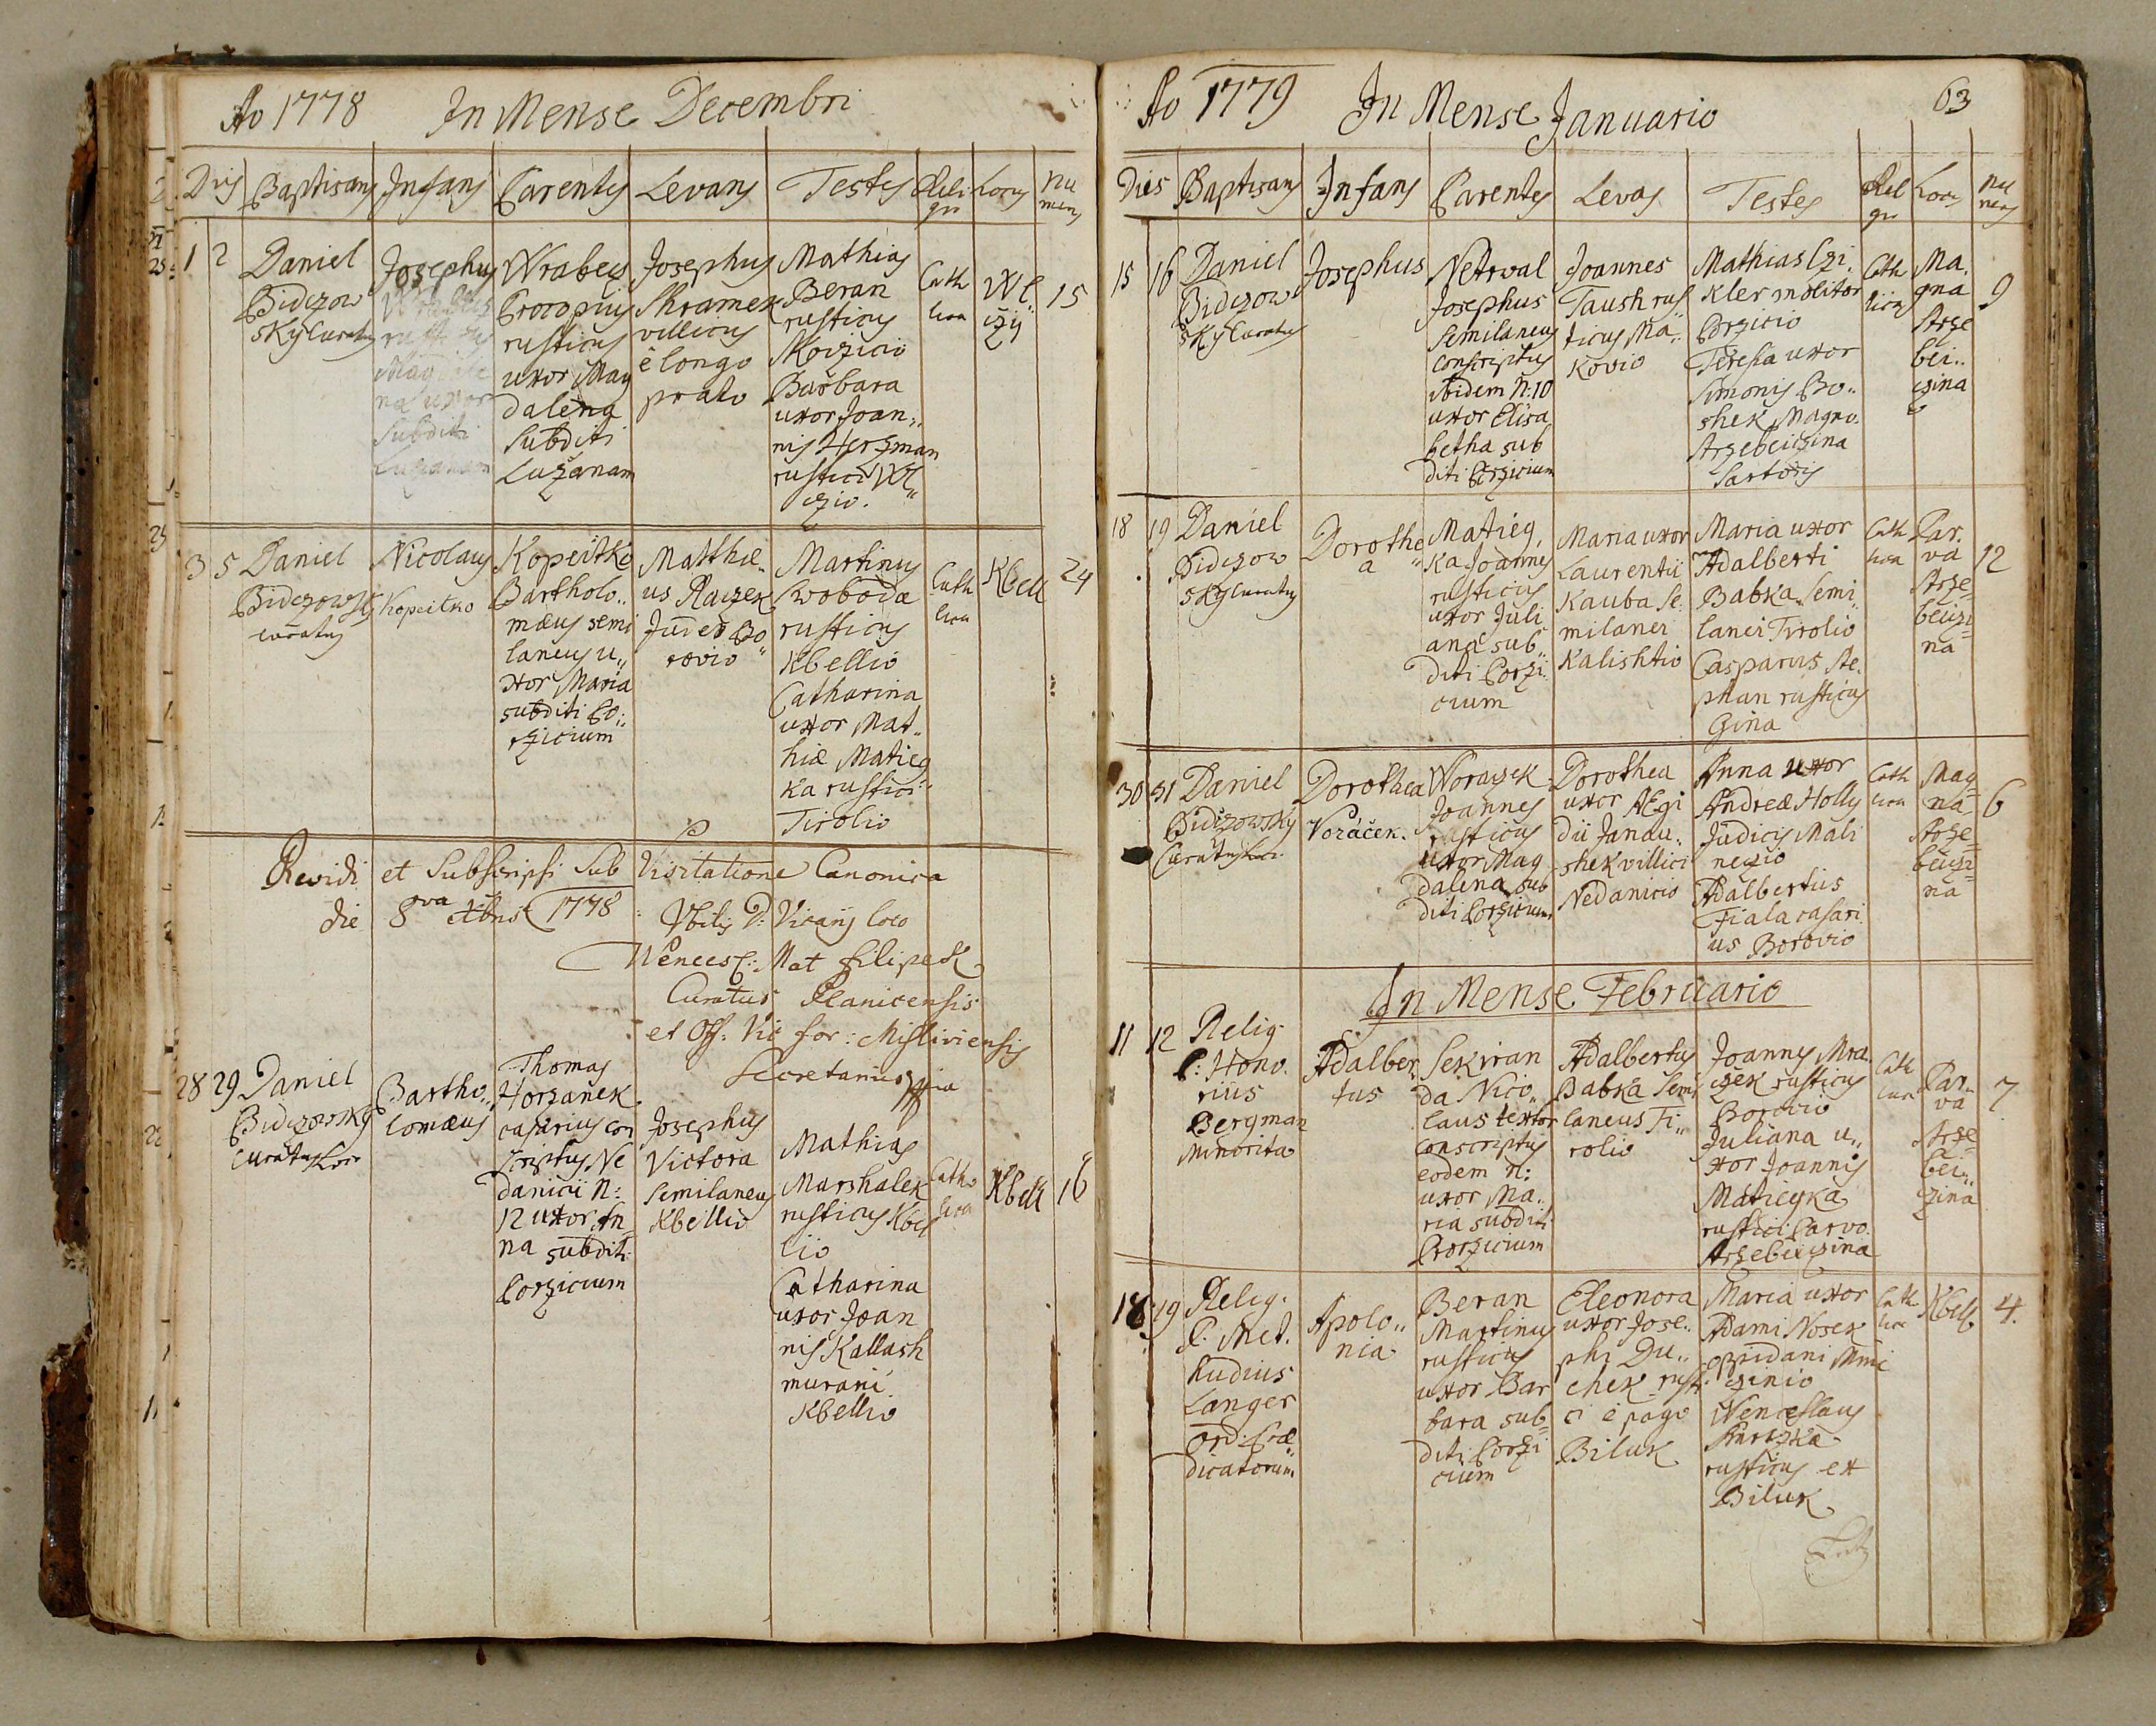 Ao 1778 In Mense Decembri
Dies Baptisans Infans Parentes Levans Testes Reli Locus Nu
gio merus
1 2
Daniel
Bidczow
sky Curatus
Josephus
rusticus
Magdale
na uxor
Subditi
Luzanam
Wrabecz
Procopius
rusticus
uxor Mag
dalena
Subditi
Luzanam
Josephus
Shramek
villicus
è longo
prato
Mathias
Beran
rusticus
Skorzicio
Barbara
uxor Joan„
nis Herzman
rustici Wl„
czio.
Cath
lica
Wl„
czij
15
3 5
Daniel
Bidczowsky
curatus
Nicolaus
Kopeitko
Kopeitko
Bartholo„
mæus semi
laneus u„
xor Maria
subditi Po„
rzicium
Matthæ„
us Raczek
Juděx Bo„
rovio
Martinus
Swoboda
rusticus
Kbellio
Catharina
uxor Mat„
hiæ Matieg
ka rustici
Tirolio
Cath
lica
Kbell
24
Revidi et Subscripsi Sub Visitatione Canonica
die 8va Xbris 1778
Vicarij loco
Wencesl: Mat Filipek
Curatus Planicensis
et Off: Vic for: Misliviensis
Secretarius mpia
28 29
Daniel
Bidczowsky
curatus Loci
Bartho„
lomæus
Thomas
Horzanek
casarius con
scriptus Ne
danicii N:
12 uxor An
na subditi
Porzicium
Josephus
Victora
Semilaneus
Kbellio
Mathias
Marshalek
rusticus Kbel
lio
Catharina
uxor Joan
nis Kallash
murarii
Kbellio
Catho
lica
Kbell
16
Ao 1779 In Mense Januario 63
Dies Baptisans Infans Parentes Levas Testes Rel Locus Nu
gio merus
15 16
Daniel
Bidczow
sky Curatus
Josephus
Netrval
Josephus
Semilaneus
conscriptus
ibidem N:10
uxor Elisa
betha sub
diti Porzicium
Joannes
Taush rus
ticus Ma„
kovio
Mathias Czi„
kler molitor
Porzicio
Teresia uxor
Simonis Bo„
shek Magno.
Arzebeiczina
Sartoris
Cath
lica
Ma„
gna
Arze
bei„
czina
9
18 19
Daniel
Bidczow
sky Curatus
Dorothe
a
Matieg„
ka Joannes
rusticus
uxor Juli
ana sub„
diti Porzi
cium
Maria uxor
Laurentii
Kauba Se„
milanei
Kalishtio
Maria uxor
Adalberti
Babka Semi„
lanei Tirolio
Casparus Ste„
phan rusticus
Gina
Cath
lica
Par„
va
Arze„
beiczi
na
12
30 31
Daniel
Bidczowsky
Curatus Loci
Dorothea
Voráček.
Woraczek
Joannes
rusticus
uxor Mag
dalena sub
diti Porzicium
Dorothea
uxor Ægi
dii Janou„
shek villici
Nedanicio
Anna uxor
Andreæ Holly
Judicis Mali
neczio
Adalbertus
Fiala casari
us Borovio
Cath
lica
Mag
na
Arze
beiczi
na
6
In Mense Februario
11 12
Relig.
P: Hono„
rius
Bergman
Minorita
Adalber
tus
Sekiran
da Nico„
laus textor
conscriptus
eodem N:
uxor Ma„
ria subditi
Porzicium
Adalbertus
Babka Semi
laneus Ti„
rolio
Joannes Mra
czek rusticus
Borovio
Juliana u„
xor Joannis
Matiegka
rustici Parvo.
Arzebeiczina
Cath
lica
Par„
va
Arze
bei„
czina
7
18 19
Relig.
P. Met.
hudius
Langer
ord: Præ
dicatorum
Apolo„
nia
Beran
Martinus
rusticus
uxor Bar
bara sub
diti Porzi
cium
Eleonora
uxor Jose„
phi Du„
chek rusti
ci è pago
Biluk
Maria uxor
Adami Nosek
oppidani Mni
czinio
Wenceslaus
rusticus ex
Biluk
Cath
lica
Kbell
4.